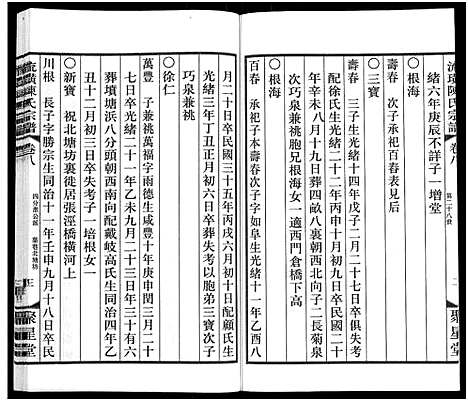 流璜陳氏宗譜 卷八
第二十八世
緒六年庚辰不詳子一增堂
○根海
壽春 三子生光緒十四年戊子二月二十七日卒俱失考
配徐氏生光緒二十二年丙申十月初九日卒民國二十
年辛未八月十九日葬四畝八裏朝西北向子二長菊泉
次巧泉兼祧胞兄根海女一適西門倉橋下高
○根海
百春 承祀子本八次子字如阜生光緒十一年乙酉八
月二十日卒民國三十五年丙戌六月初十日配顧氏生
光緒三年丁丑正月初六日卒葬失考以胞弟三寶次子
巧泉兼祧
○徐仁
萬豐 子兼祧萬福字雨德生咸豐十年庚申閏三月二十
七日卒光緒二十一年乙未九月二十三日年三十有六
葬墳塘浜八分頭朝西南向配戴岐高氏生同治四年乙
丑十二月初三日卒失考子一培根女一
○新寶 祝北塘坊裏徙居張涇橋橫河上
川根 長子字勝宗生同治十一年壬申九月十八日卒民
流璜陳氏宗譜
卷八
聚星堂
聚星堂